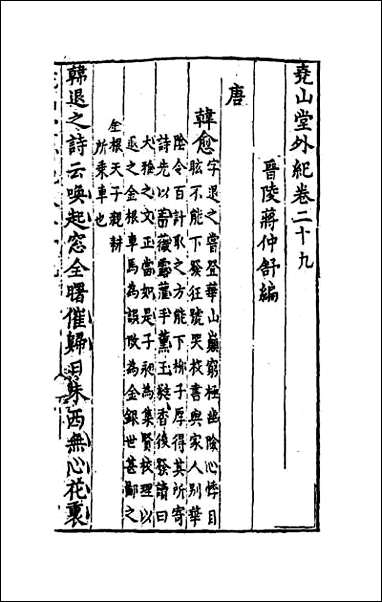 堯山堂外紀卷二十九
晉陵蔣仲舒編
唐
韓愈
字退之嘗登華山巔窮極幽險心悸目
眩不能下發狂號哭投書與家人別華
陰令百計取之方能下柳子厚得其所寄
詩先以薔薇露盥手薰玉蕤香後發讀曰
大雅之文正當如是子昶為集賢校理以
逐之金根車馬為誤改為金銀世甚鄙之
金根天子親耕
所乘車也
韓退之詩云喚起窓全曙催歸日未西無心花裏